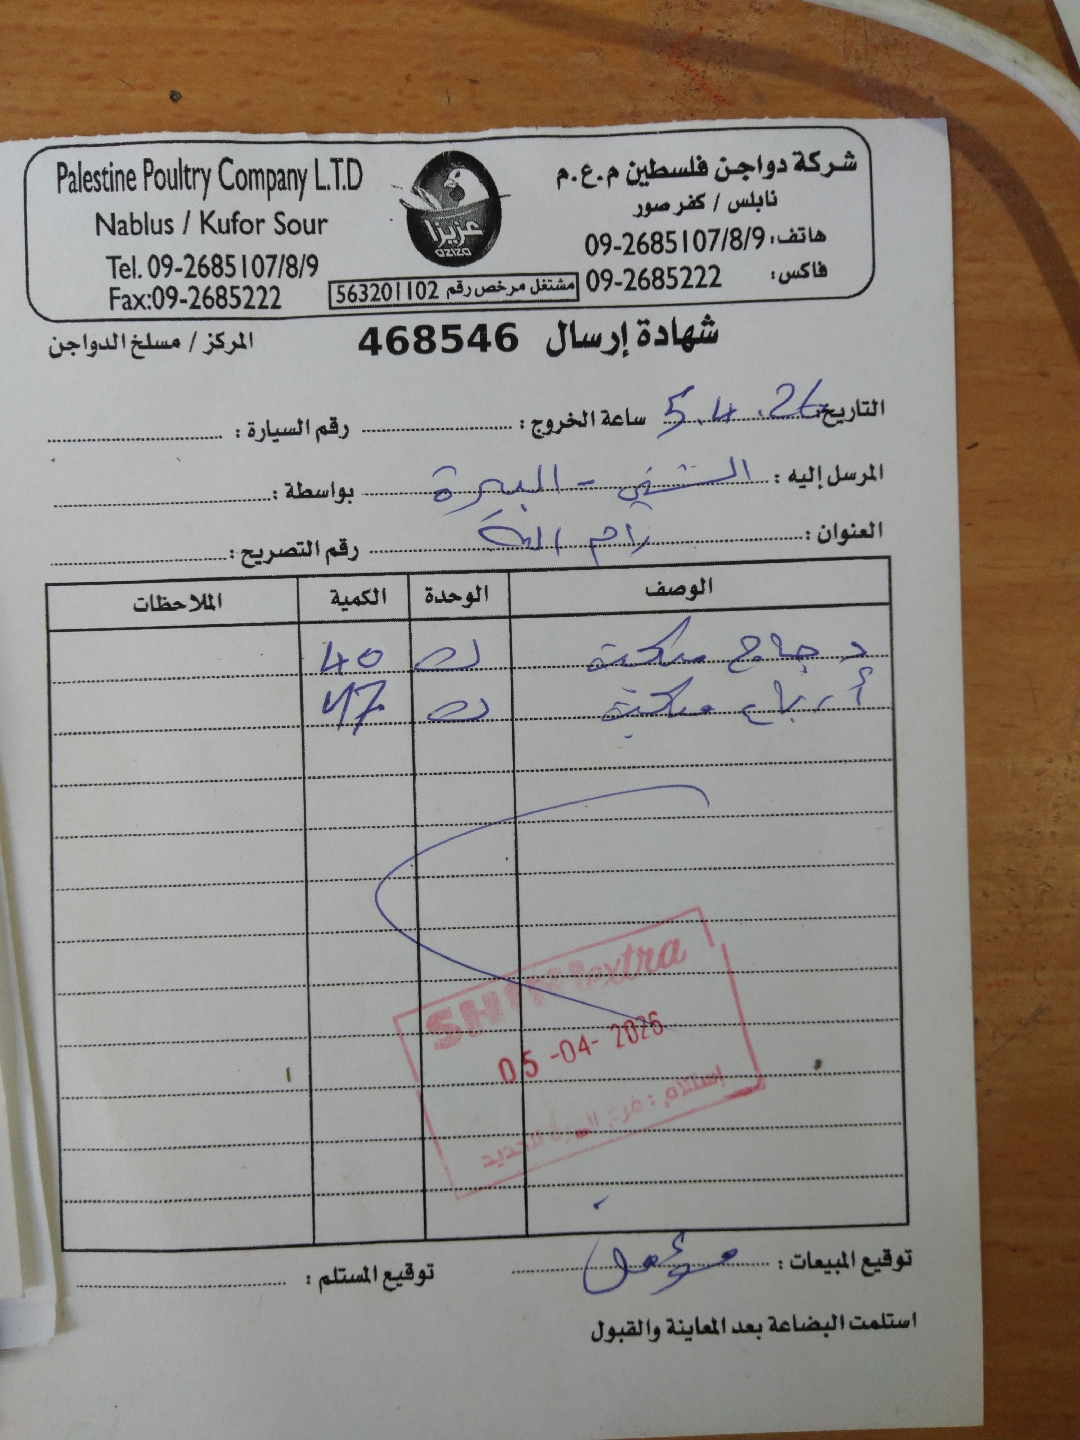 Palestine Poultry Company L.T.D
Nablus / Kufor Sour
Tel. 09-2685107/8/9
Fax:09-2685222
عزيزا
AZIZA
مشتغل مرخص رقم 563201102
شركة دواجن فلسطين م.ع.م
نابلس / كفر صور
هاتف: 09-2685107/8/9
فاكس: 09-2685222
شهادة إرسال 468546
المركز / مسلخ الدواجن
التاريخ: 5.4.26 ساعة الخروج: رقم السيارة:
المرسل إليه: الشني - البيرة بواسطة:
العنوان: رام الله رقم التصريح:
الوصف الوحدة الكمية الملاحظات
دجاج 40
أرباع 47
extra
05-04-2026
إستلام: فرع البيرة الجديد
توقيع المبيعات: توقيع المستلم:
استلمت البضاعة بعد المعاينة والقبول